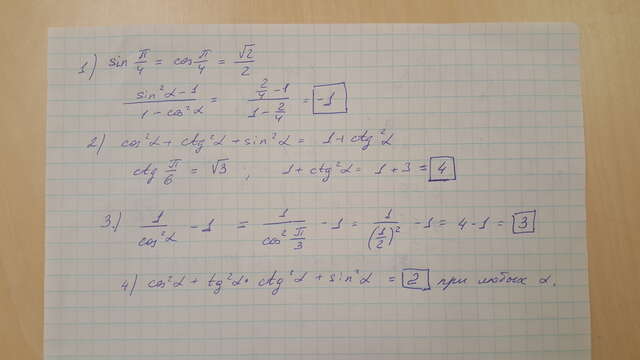 1) sin π/4 = cos π/4 = √2/2
(sin²α - 1)/(1 - cos²α) = (2/4 - 1)/(1 - 2/4) = -1
2) cos²α + ctg²α + sin²α = 1 + ctg²α
ctg π/6 = √3 ; 1 + ctg²α = 1 + 3 = 4
3) 1/cos²α - 1 = 1/cos² π/3 - 1 = 1/(1/2)² - 1 = 4 - 1 = 3
4) cos²α + tg²α · ctg²α + sin²α = 2 при любых α.